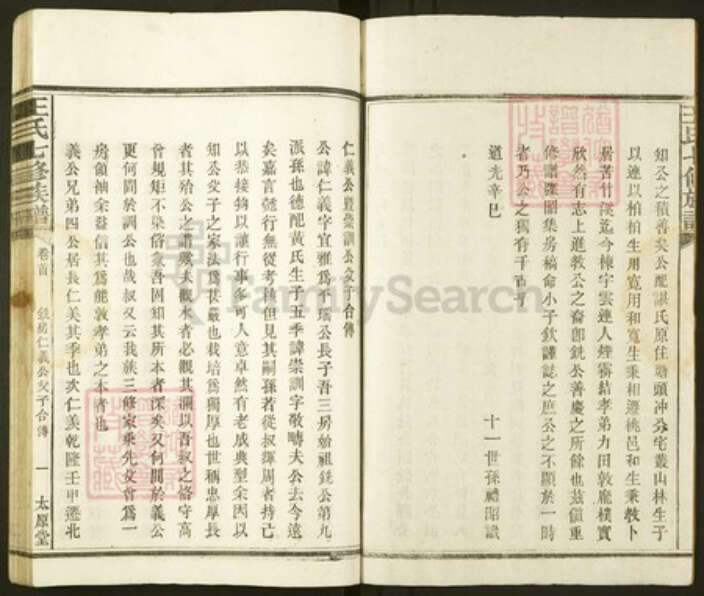 王氏七修族譜
知公之積善矣公配諶氏原住塘頭冲分宅叢山林生于
以連以柏柏生用寬用和寬生秉相遷桃邑和生秉教卜
居苦竹溪迄今棟宇雲連人煙霧結孝弟力田敦龐樸實
欣然有志上進教公之裔卽銑公善慶之所餘也茲值重
修譜牒圖集房稿命小子欽謹誌之庶公之不顯於一時
者乃公之獨有千古乎
十一世孫禮昭識
道光辛巳
仁義公暨崇訓公父子合傳
公諱仁義字宜雅爲不瑞公長子吾三房始祖銑公第九
派孫也德配黃氏生子五季諱崇訓字敬疇夫公去今遠
矣嘉言懿行無從考稽但見其嗣孫若從叔輝周者持己
以恭接物以謙行事多可人意卓然有老成典型余因以
知公父子之家法爲甚嚴也栽培爲獨厚也世稱忠厚長
者其殆公之謂歟夫觀水者必觀其瀾以吾叔之恪守高
曾規矩不染俗氛吾固知其所本者深矣又何間於義公
更何間於訓公也哉叔又云我族三修家乘先父曾爲一
房領袖余益信其爲能敦孝弟之本者也
義公兄弟四公居長仁美其季也次仁羨乾隆壬申遷北
王氏七修族譜
卷首
銑房仁義公父子合傳
一
太原堂
FamilySearch